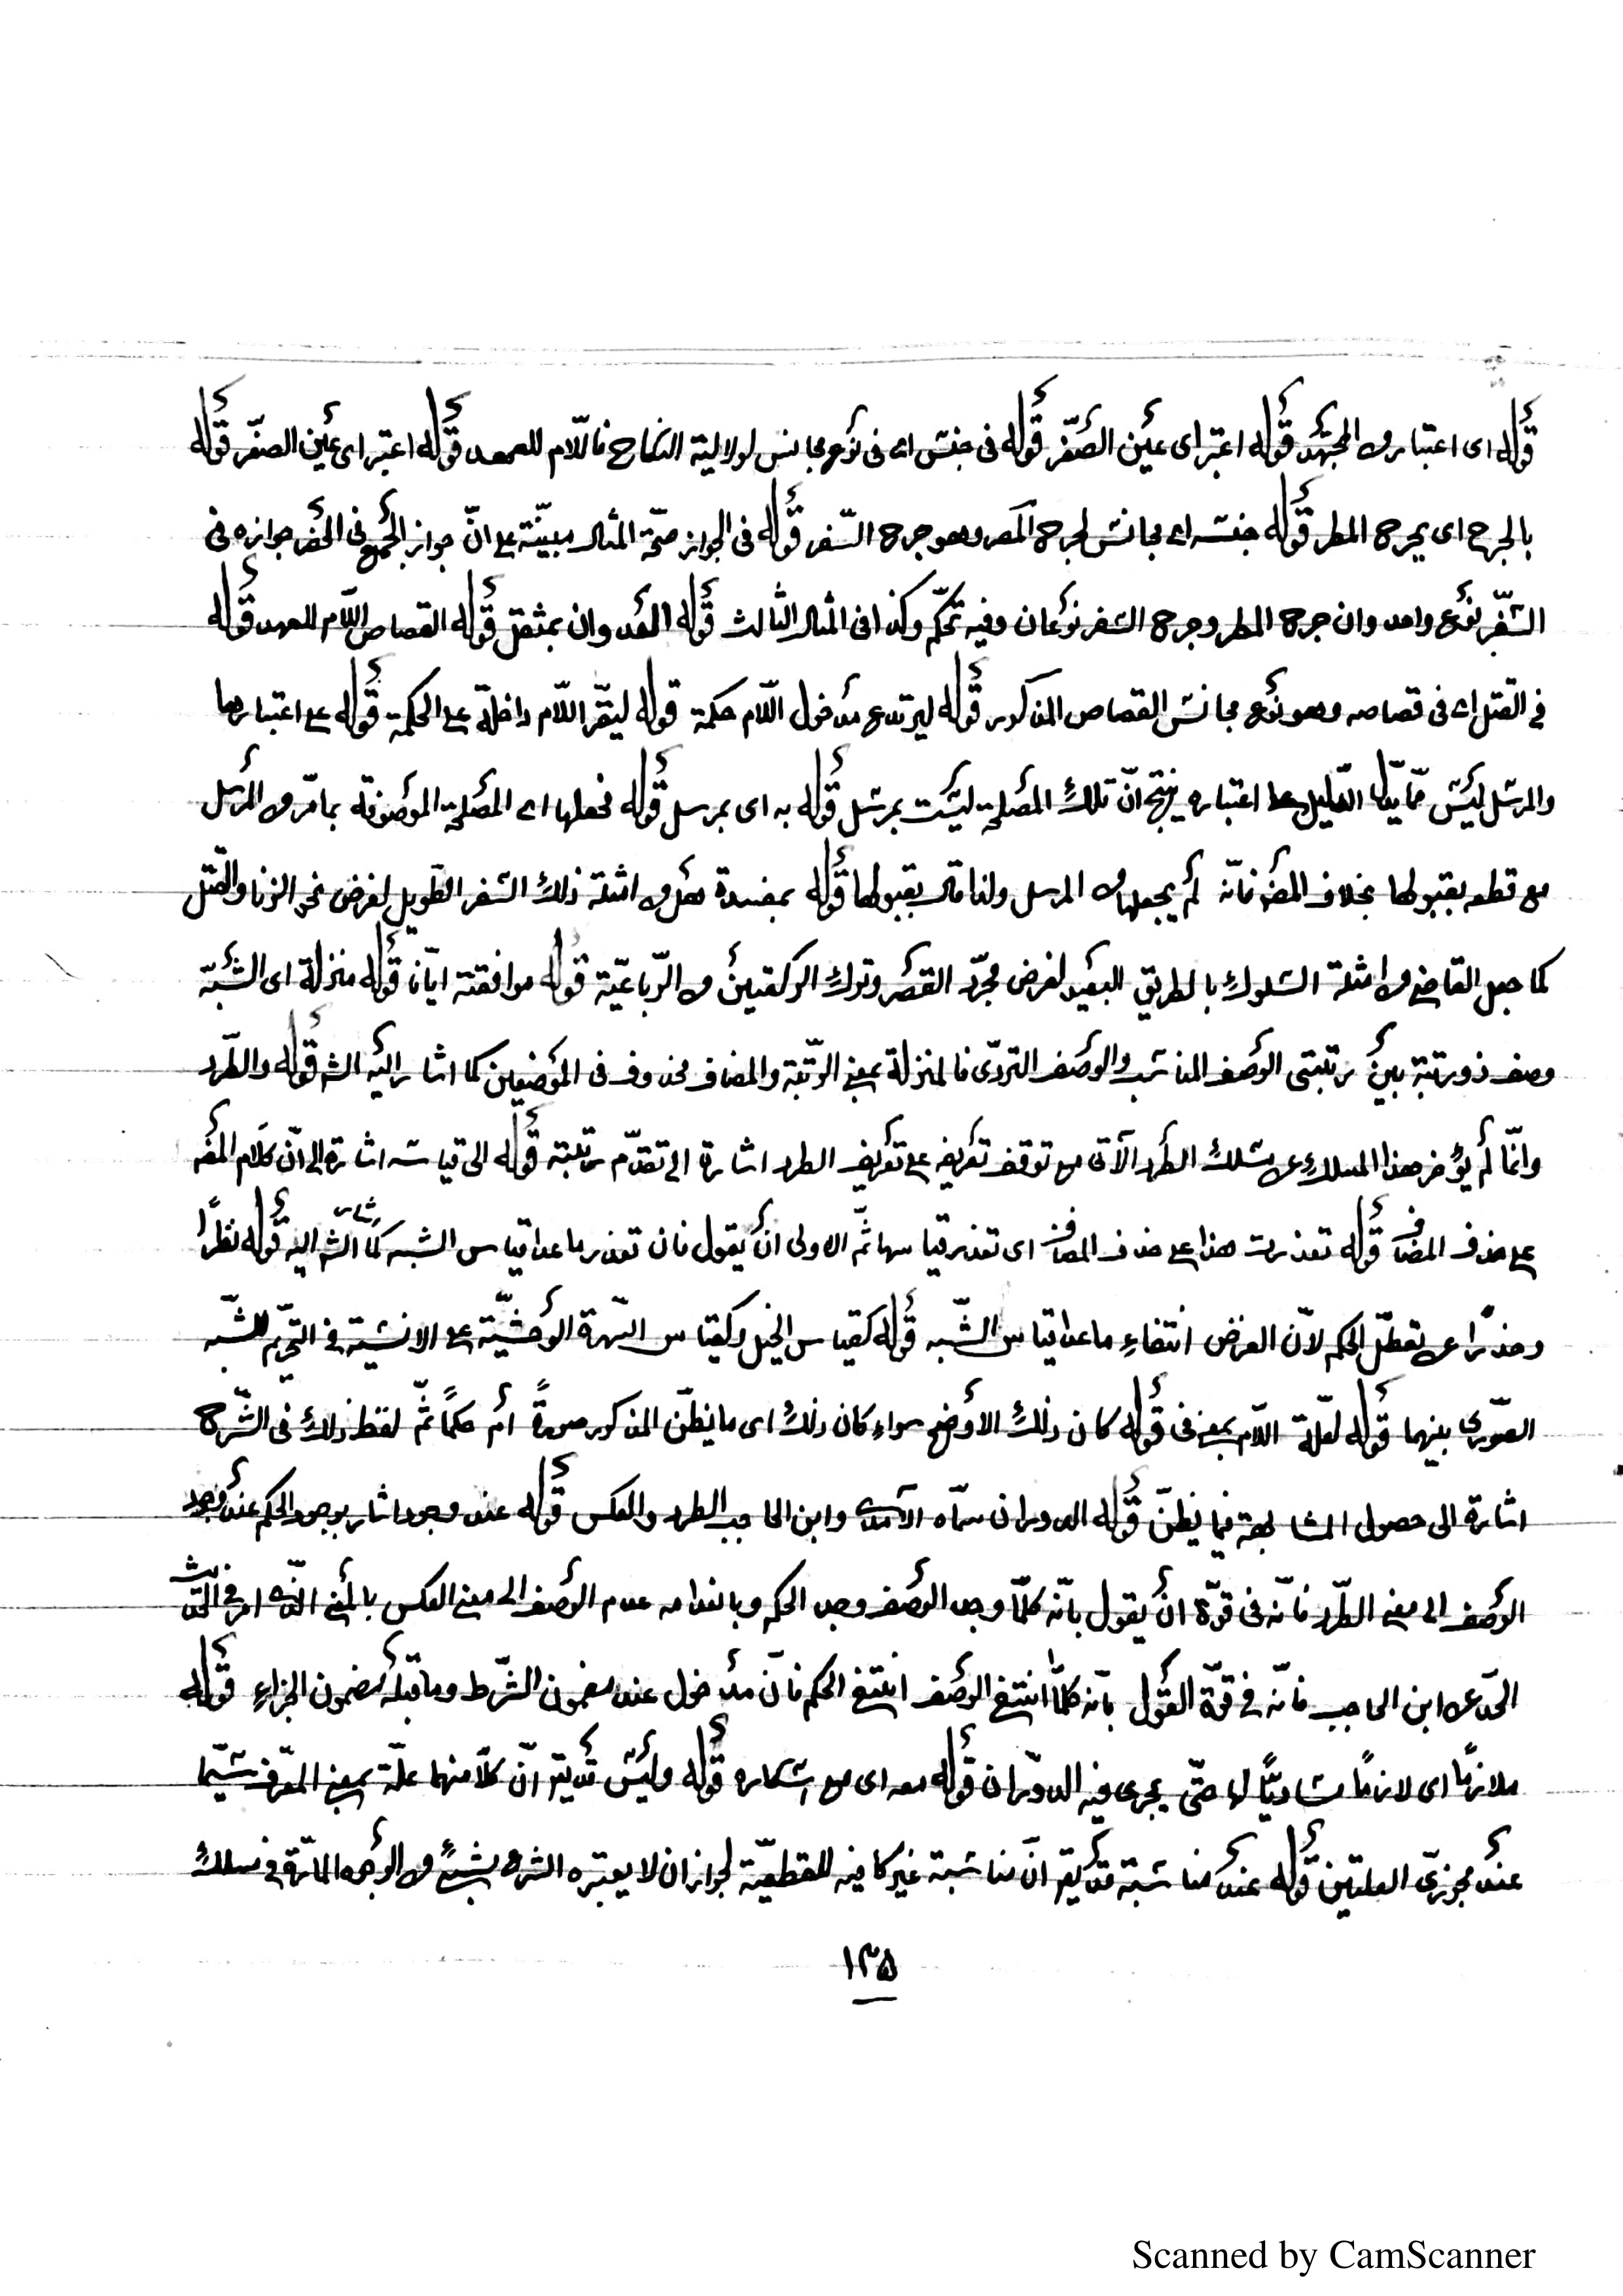 قوله اى اعتبار من المجتهد قوله اعتبر اى عين الصغر قوله فى جنس اى فى نوع مجانس لولاية النكاح فاللام للعهد قوله اعتبر اى عين الصغر قوله
بالحرج اى بحرج المطر قوله جنسه اى مجانس لحرج المصر وهو حرج السفر قوله فى الجواز صحة المثال مبينة على ان جواز الجمع فى الحضر جوازه فى
السفر نوع واحد وان حرج المطر وحرج السفر نوعان وفيه تحكم وكذا فى المثال الثالث قوله العمد وان بمثقل قوله القصاص اللام للعهد قوله
فى القتل اى فى قصاصه وهو نوع مجانس القصاص المذكور قوله ليرتدع مدخول اللام حكمة قوله ليقر اللام داخلة على الحكمة قوله على اعتبارها
والمرسل ليس مما يدل الدليل على اعتباره ينتج ان تلك المصلحة ليست بمرسل قوله به اى بمرسل قوله فجعلها اى المصلحة الموصوفة بما مر من المرسل
مع قطعه بقبولها بخلاف المصنف فانه لم يجعلها من المرسل ولذا قال بقبولها قوله بمفسدة هل من امثلة ذلك السفر الطويل لغرض نحو الزنا والقتل
كما جعل القاضى من امثلة السلوك بالطريق البعيد لغرض مجرد القصر وترك الركعتين من الرباعية قوله موافقته ايانا قوله منزلة اى الشبه
وصف ذو رتبة بين رتبتى الوصف المناسب والوصف التردى فالمنزلة بمعنى الرتبة والمضاف محذوف فى الموضعين كما اشار اليه الشه قوله والطرد
وانما لم يؤخر هذا المسلك عن مسلك الطرد الآتى مع توقف تعريفه على تعريف الطرد اشارة الى تقدم رتبته قوله الى قياسه اشارة الى ان كلام المصنف
على حذف المضاف قوله تعذرت هذا على حذف المضاف اى تعذر قياسها ثم الاولى ان يقول فان تعذر ما عدا قياس الشبه كما اشار الشه اليه قوله نظرا
وحذرا عن تعطل الحكم لان الغرض انتفاء ما عدا قياس الشبه قوله كقياس الخيل وكقياس الهرة الوحشية على الانسية فى التحريم للشبه
الصورى بينهما قوله لعلة اللام بمعنى فى قوله كان ذلك الاوضح سواء كان ذلك اى ما نظن المذكور صورة ام حكما ثم لفظ ذلك فى الشرح
اشارة الى حصول المشابهة فيما نظن قوله الدوران سماه الآمدى وابن الحاجب الطرد والعكس قوله عند وجود اشار بوجود الحكم عند وجود
الوصف الى معنى الطرد فانه فى قوة ان يقول بانه كلما وجد الوصف وجد الحكم وبانعدامه عدم الوصف الى معنى العكس بالمعنى الذى مر فى بحث
الحد عن ابن الحاجب فانه فى قوة القول بانه كلما انتفى الوصف انتفى الحكم فان مدخول عند مضمون الشرط وما قبله مضمون الجزاء قوله
ملازما اى لازما مساويا لها حتى يجرى فيه الدوران قوله معه اى مع اسكاره قوله وليس قد يقر ان كلا منهما علة بمعنى المعرف سيما
عند مجوزى العلتين قوله عند مناسبة قد يقر ان مناسبة غير كافيه للقطعية لجواز ان لا يعتبره الشرع بشئ من الوجوه المارة فى مسلك
١٣٥
Scanned by CamScanner